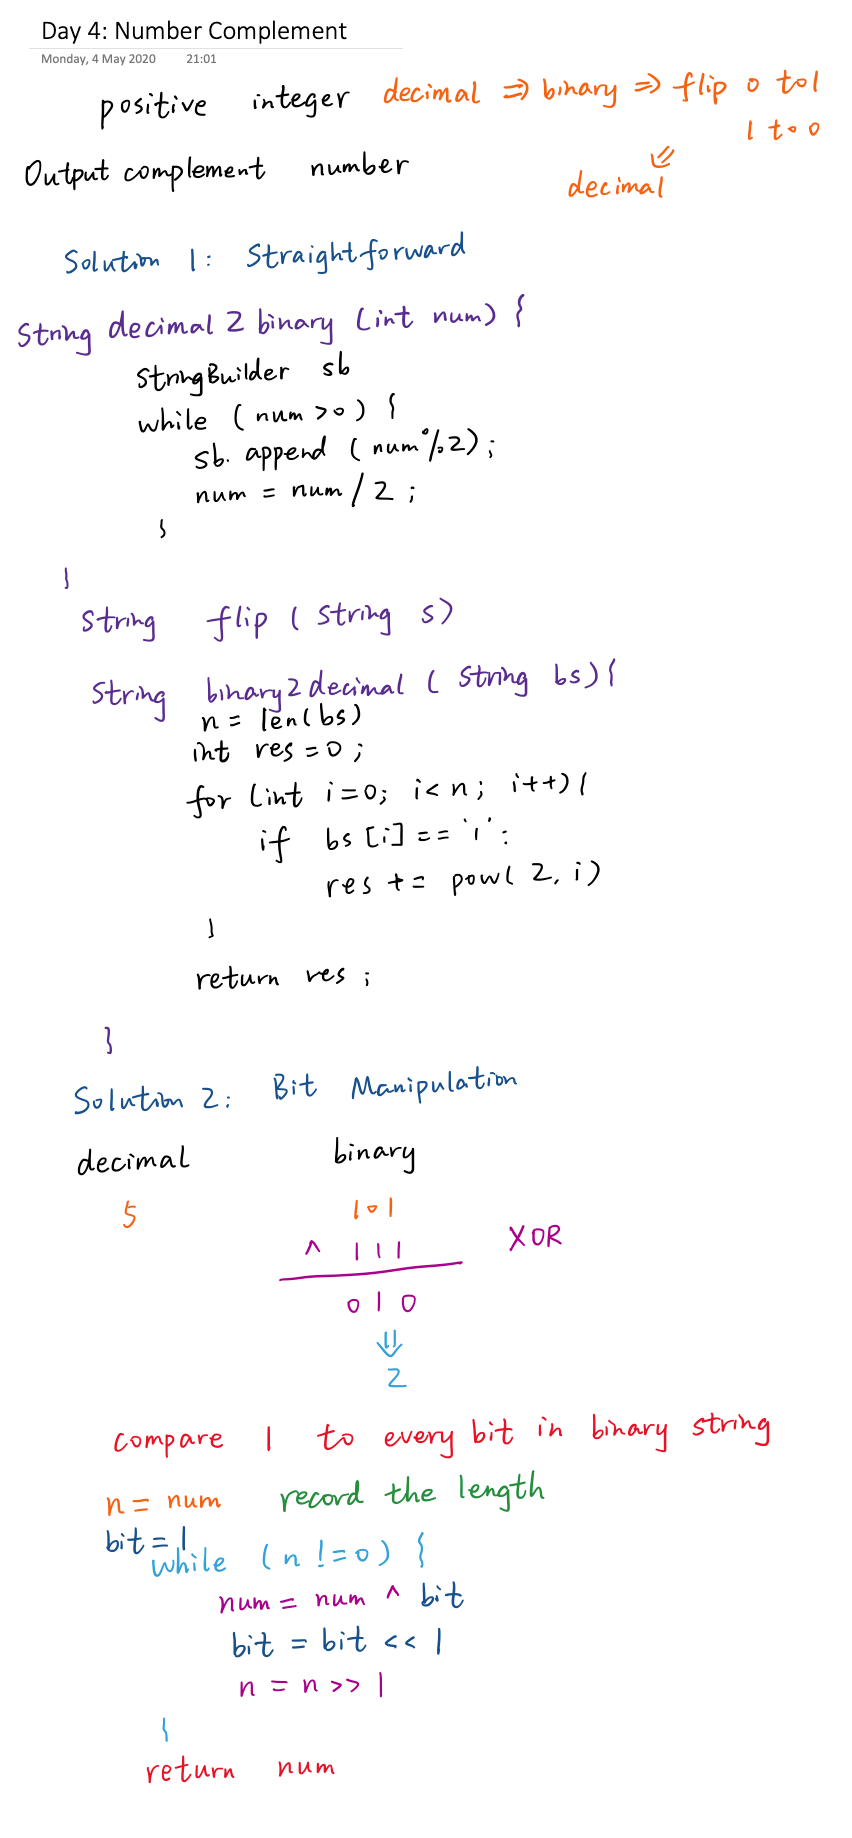 Day 4: Number Complement
Monday, 4 May 2020 21:01
positive integer decimal => binary => flip 0 to 1
1 to 0
Output complement number
decimal
Solution 1: Straightforward
String decimal 2 binary (int num) {
StringBuilder sb
while (num>0) {
sb. append (num%2);
num = num / 2 ;
}
}
String flip ( String s)
String binary2decimal ( String bs) {
n = len(bs)
int res = 0 ;
for (int i=0; i<n; i++) {
if bs [i] == '1' :
res += pow( 2, i)
}
return res ;
}
Solution 2: Bit Manipulation
decimal binary
5 101
^ 111 XOR
010
⇓
2
compare 1 to every bit in binary string
n = num record the length
bit = 1
while (n != 0) {
num = num ^ bit
bit = bit << 1
n = n >> 1
}
return num